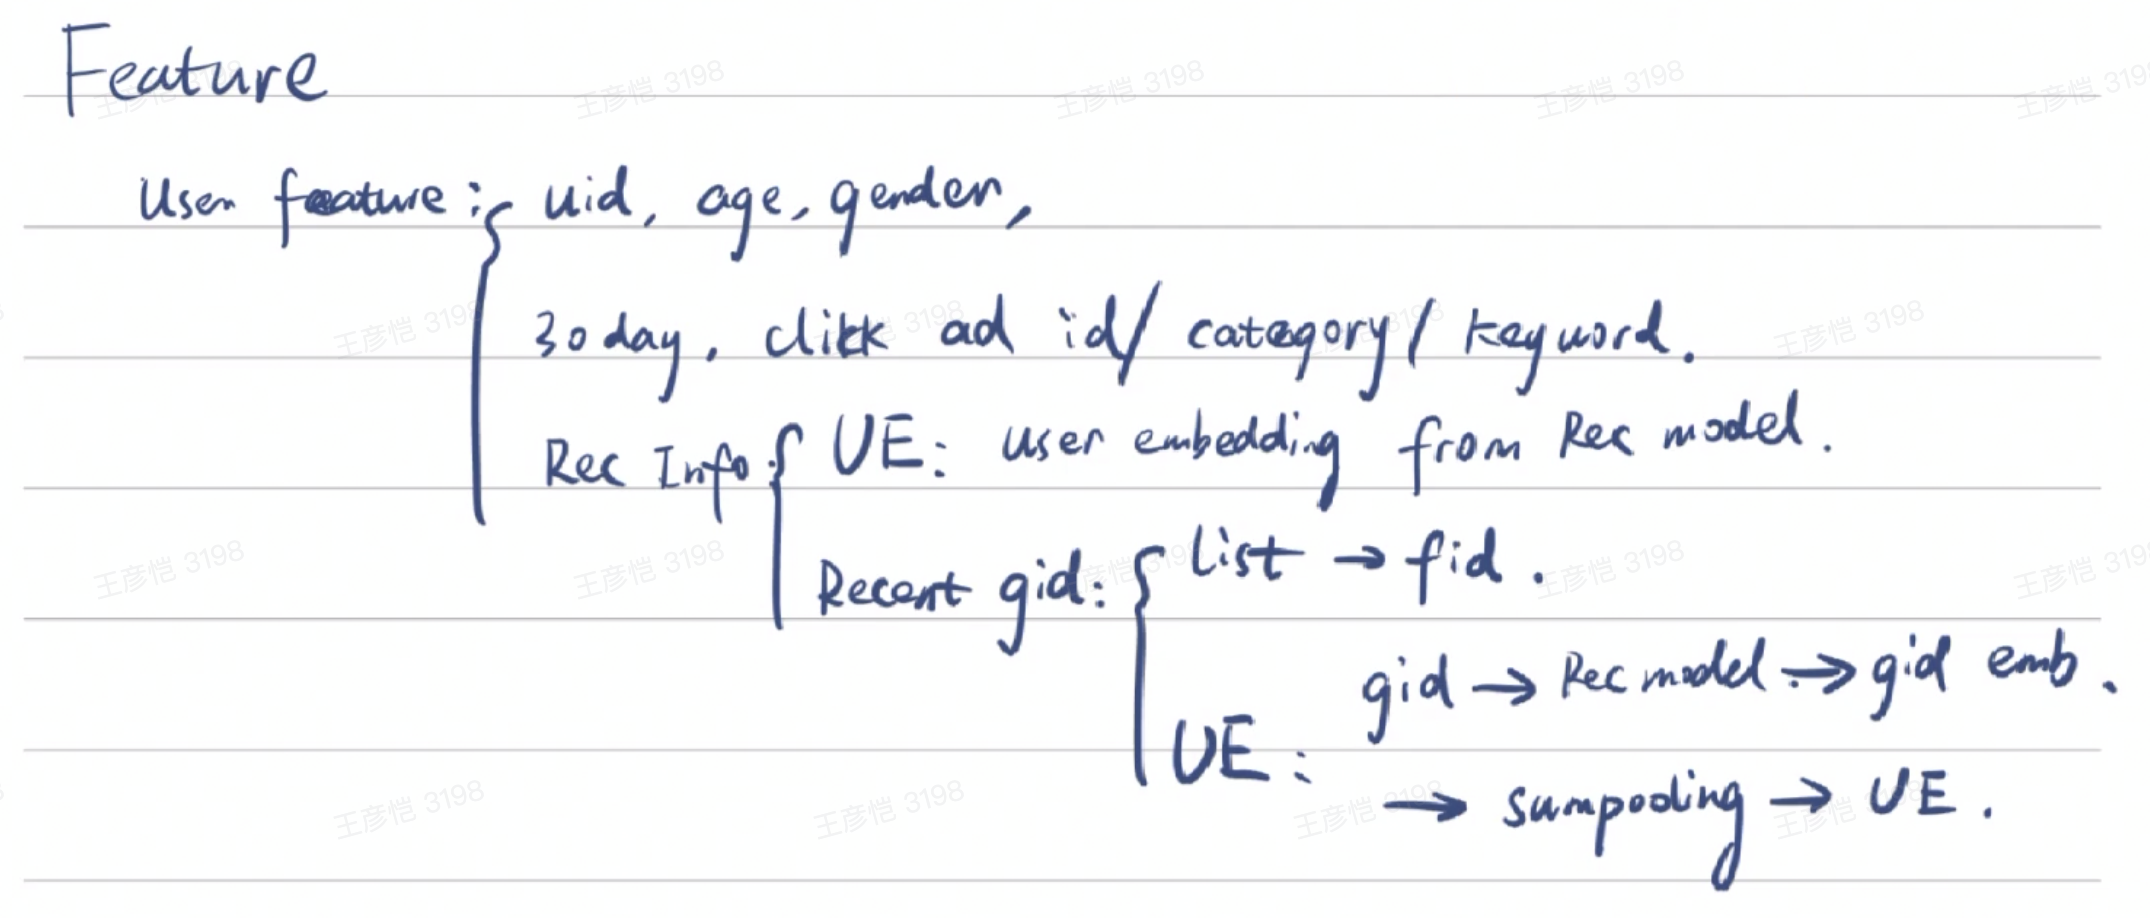 Feature
User feature: uid, age, gender,
30 day, click ad id/ category/ keyword.
Rec Info: UE: user embedding from Rec model.
Recent gid: list → fid.
gid → Rec model → gid emb.
UE:
→ sumpooling → UE.
王彦恺 3198